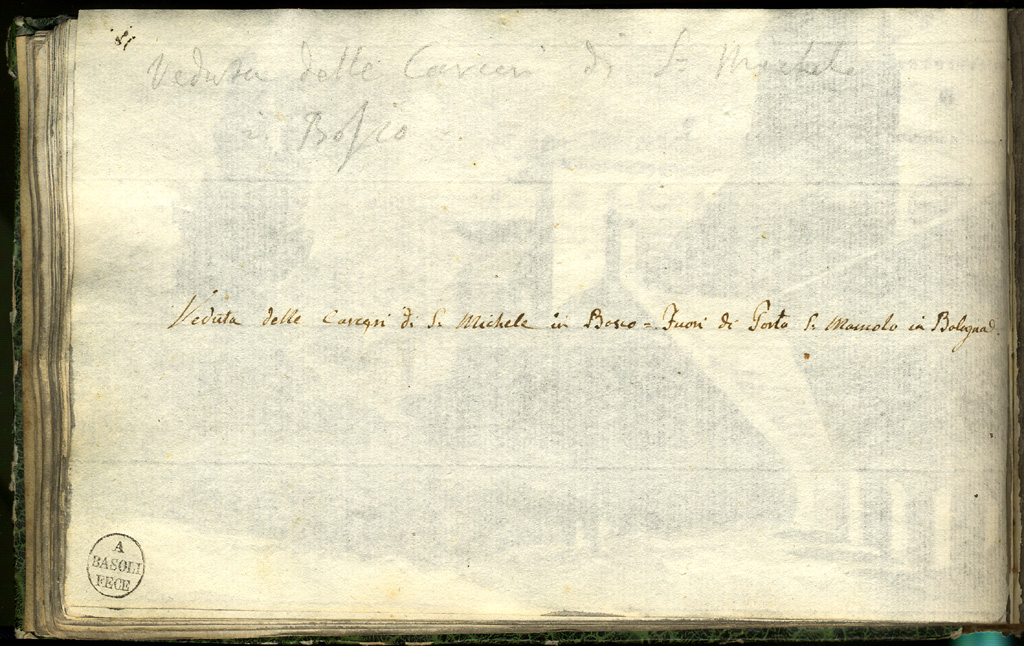 81
Veduta delle Carceri di S. Michele
in Bosco
Veduta delle Carceri di S. Michele in Bosco = Fuori di Porta S. Mamolo in Bologna
A
BASOLI
FECE